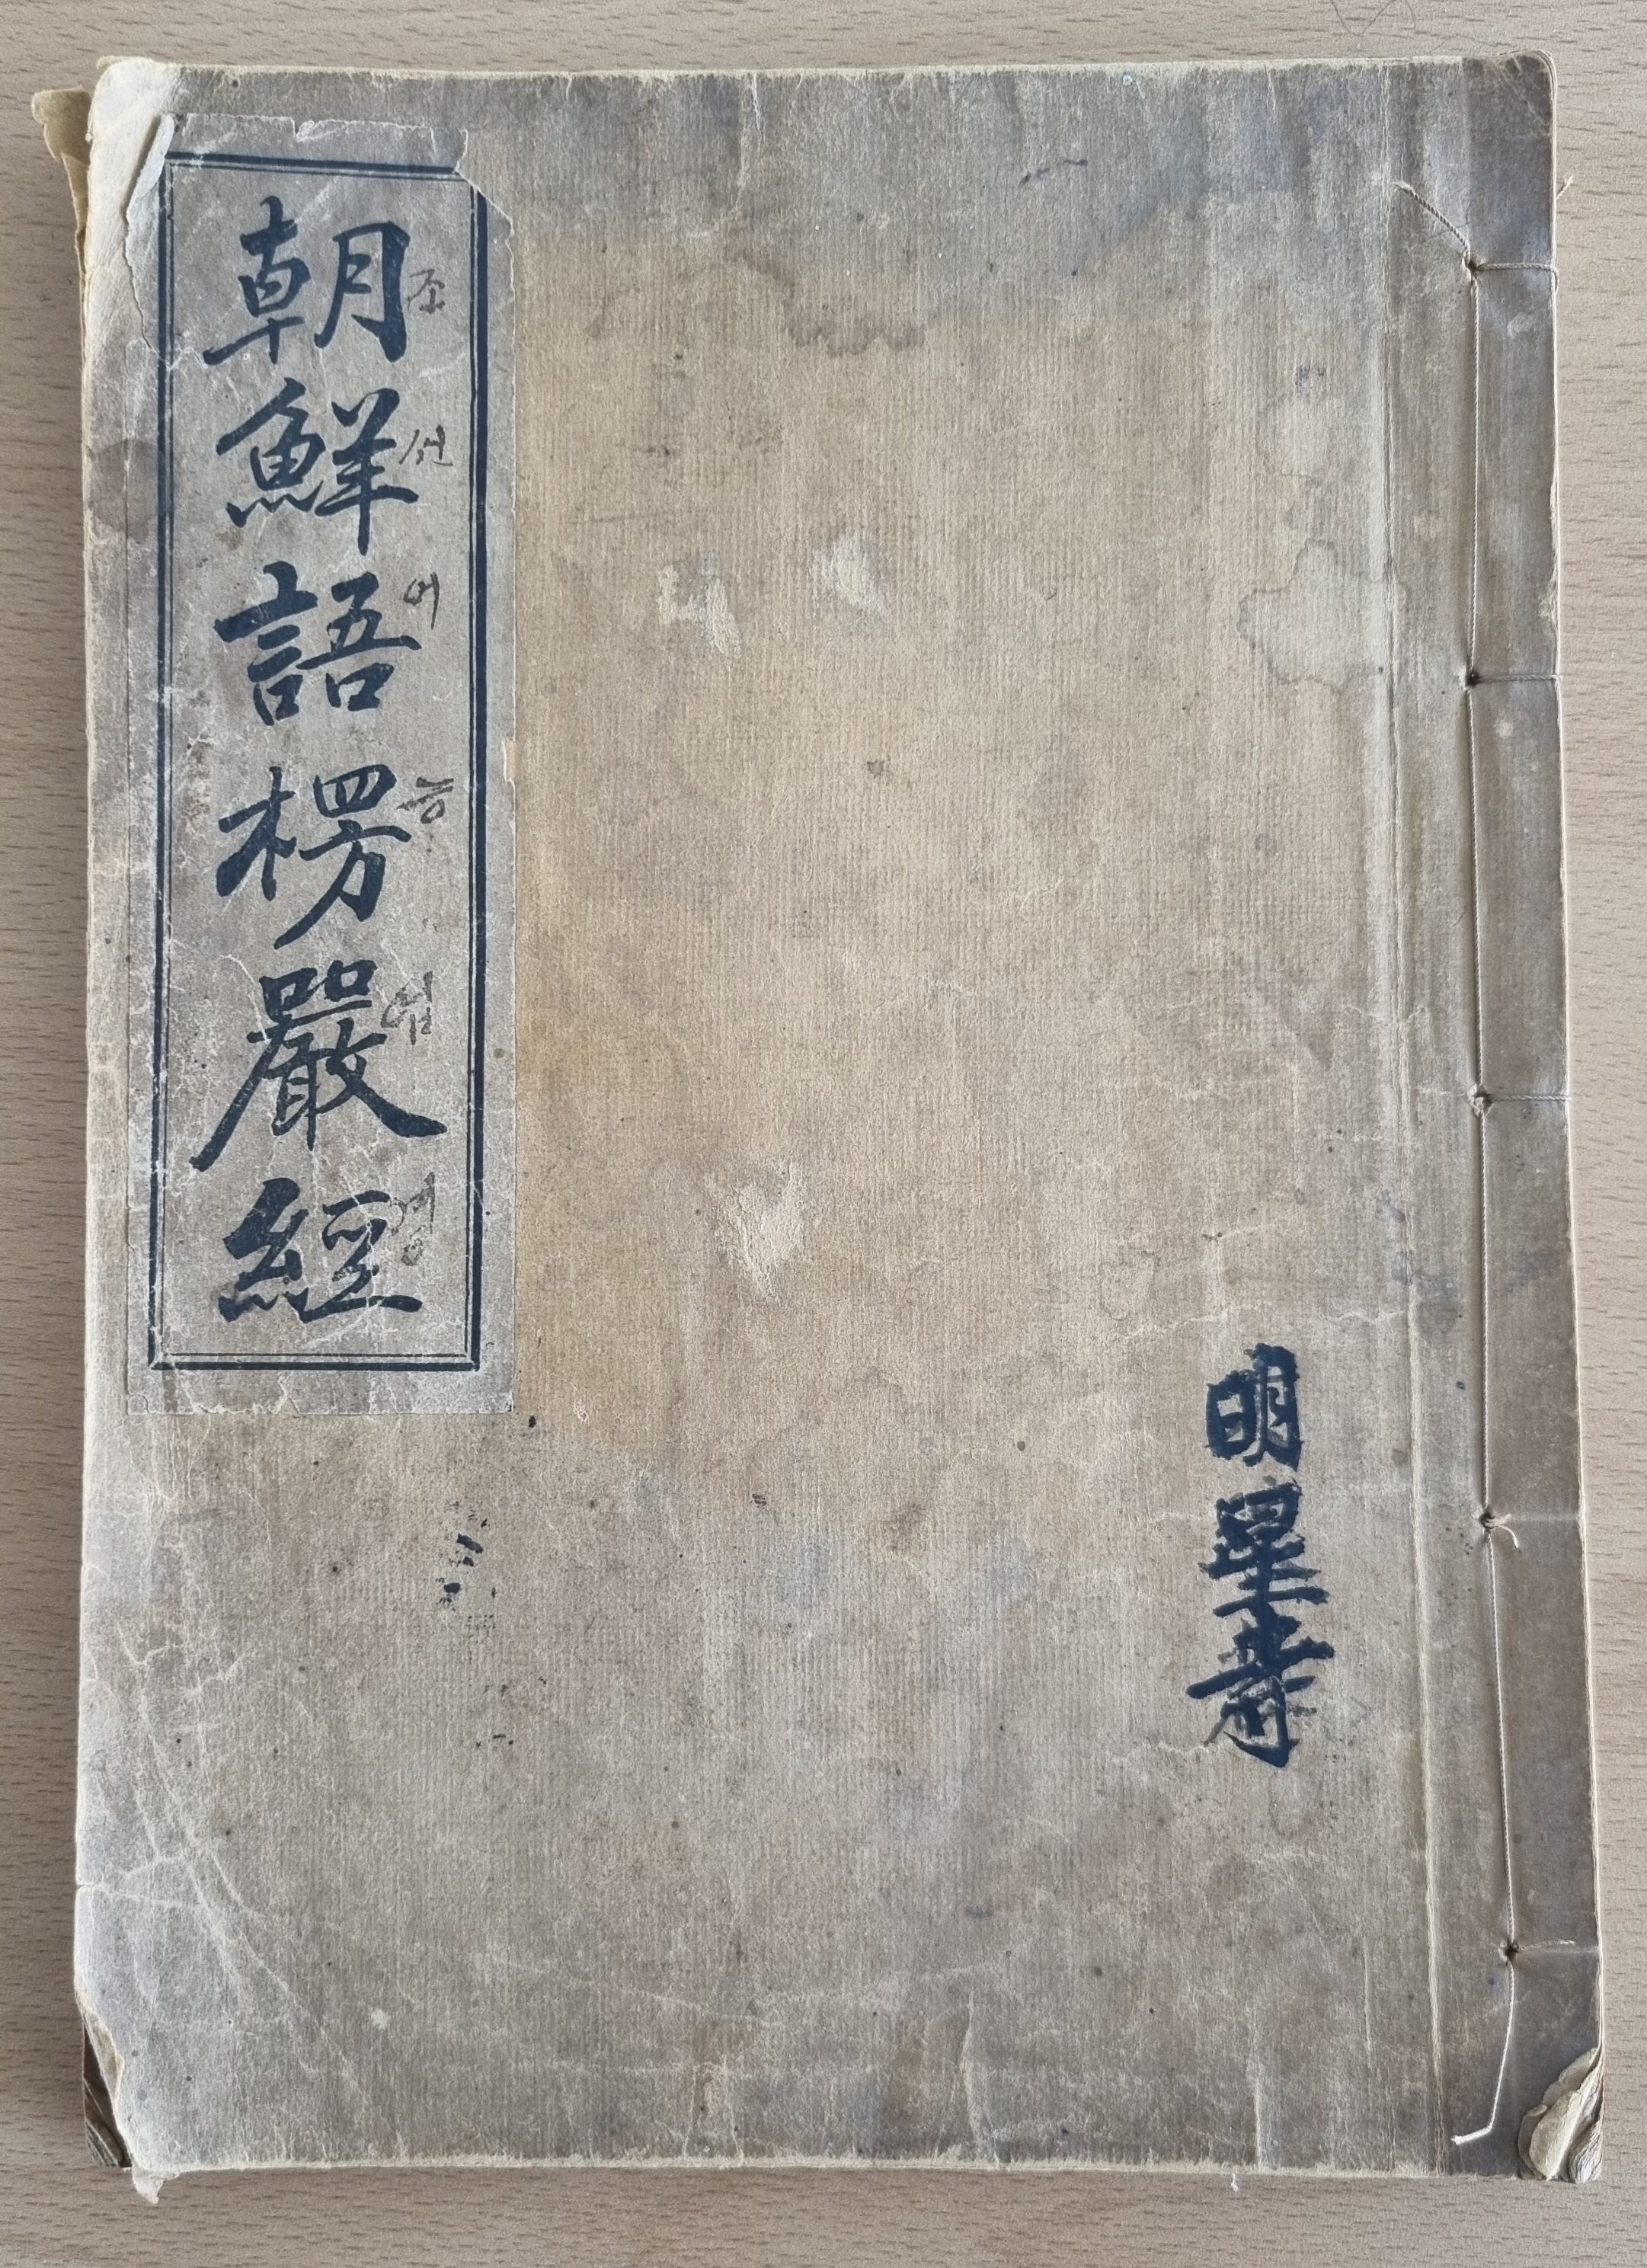 朝鮮語楞嚴經
조선어능엄경
明星